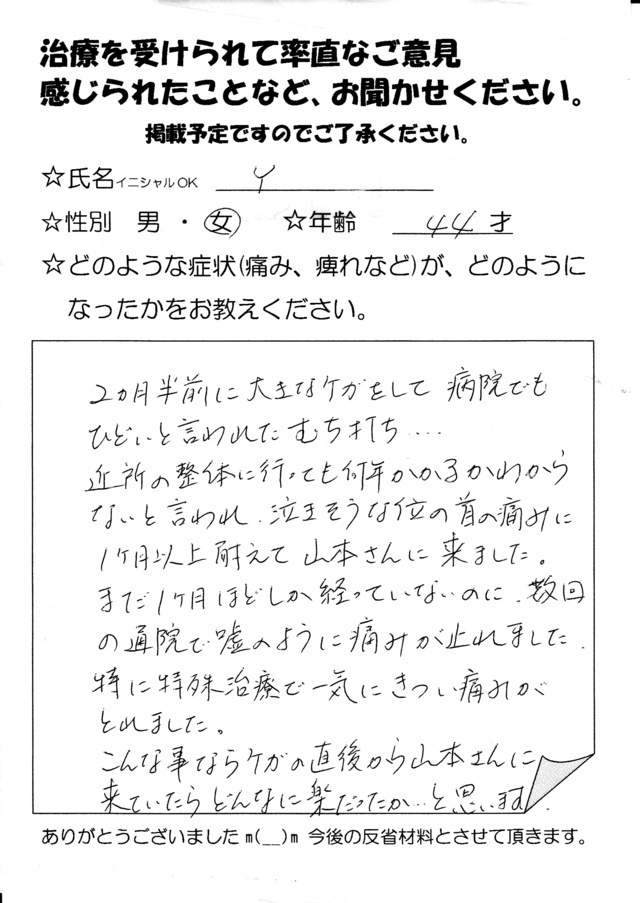 治療を受けられて率直なご意見
感じられたことなど、お聞かせください。
掲載予定ですのでご了承ください。
☆氏名イニシャルOK Y
☆性別 男 ・ 女 ☆年齢 44 才
☆どのような症状(痛み、痺れなど)が、どのように
なったかをお教えください。
2ヵ月半前に大きなケガをして 病院でも
ひどいと言われたむち打ち....
近所の整体に行っても何年かかるかわから
ないと言われ、泣きそうな位の首の痛みに
1ヶ月以上耐えて山本さんに来ました。
まだ1ヶ月ほどしか経っていないのに、数回
の通院で嘘のように痛みが止れました、
特に特殊治療で一気にきつい痛みが
とれました。
こんな事ならケガの直後から山本さんに
来ていたらどんなに楽だったか...と思います.
ありがとうございましたm(__)m 今後の反省材料とさせて頂きます。